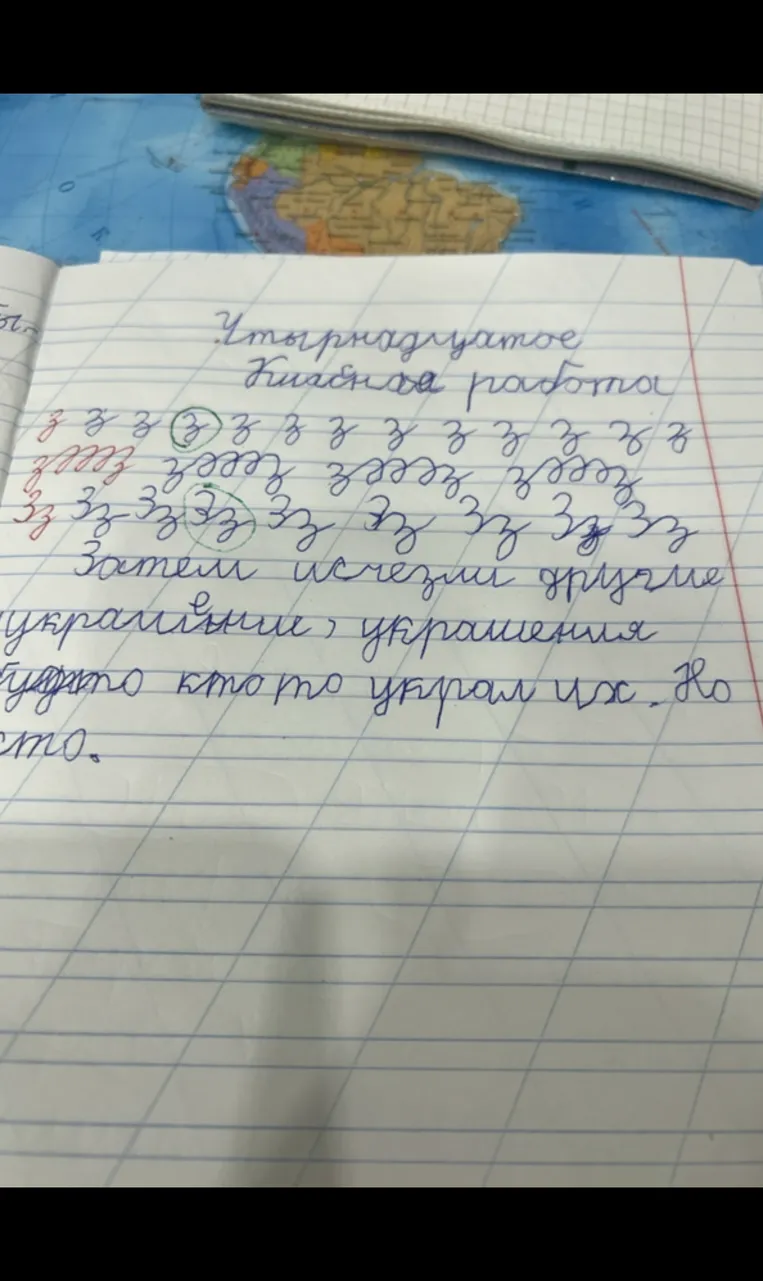 Утырнадцатое
Класная работа
з з з з з з з з з з з з з
ззззз ззззз ззззз ззззз
Зз Зз Зз Зз Зз Зз Зз Зз Зз
Затем исчезли другие
украшение, украшения
будто кто то украл их. Но
сто.